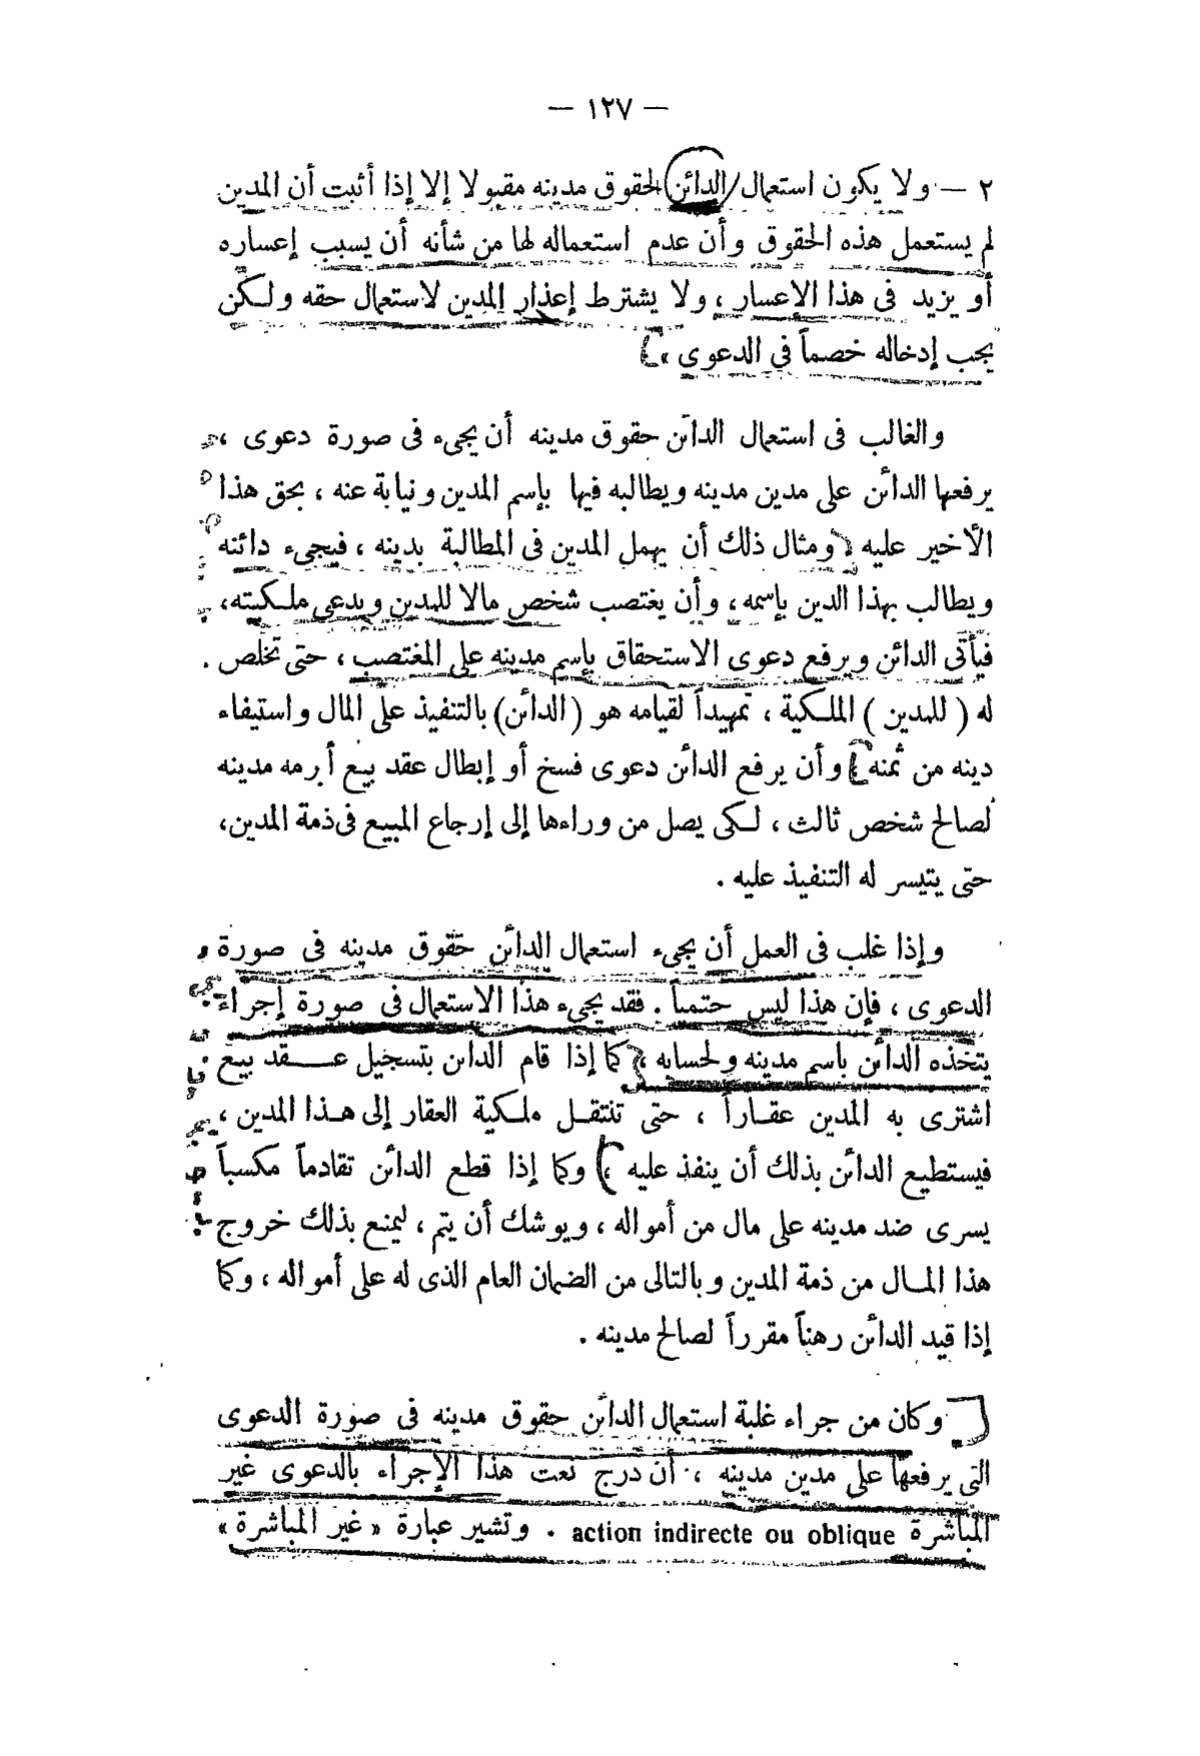 — ١٢٧ —
٢ — ولا يكون استعمال الدائن لحقوق مدينه مقبولا إلا إذا أثبت أن المدين
لم يستعمل هذه الحقوق وأن عدم استعماله لها من شأنه أن يسبب إعساره
أو يزيد فى هذا الإعسار ، ولا يشترط إعذار المدين لاستعمال حقه ولكن
يجب إدخاله خصماً فى الدعوى ،
والغالب فى استعمال الدائن حقوق مدينه أن يجىء فى صورة دعوى ،
يرفعها الدائن على مدين مدينه ويطالبه فيها بإسم المدين ونيابة عنه ، بحق هذا
الأخير عليه ومثال ذلك أن يهمل المدين فى المطالبة بدينه ، فيجىء دائنه
ويطالب بهذا الدين بإسمه ، وأن يغتصب شخص مالا للمدين ويدعى ملكيته ،
فيأتى الدائن ويرفع دعوى الاستحقاق بإسم مدينه على المغتصب ، حتى تخلص
له ( للمدين ) الملكية ، تمهيداً لقيامه هو ( الدائن ) بالتنفيذ على المال واستيفاء
دينه من ثمنه وأن يرفع الدائن دعوى فسخ أو إبطال عقد بيع أبرمه مدينه
لصالح شخص ثالث ، لكى يصل من وراءها إلى إرجاع المبيع فى ذمة المدين ،
حتى يتيسر له التنفيذ عليه .
وإذا غلب فى العمل أن يجىء استعمال الدائن حقوق مدينه فى صورة
الدعوى ، فإن هذا ليس حتمياً . فقد يجىء هذا الاستعمال فى صورة إجراء
يتخذه الدائن باسم مدينه ولحسابه ، كما إذا قام الدائن بتسجيل عقد بيع
اشترى به المدين عقاراً ، حتى تنتقل ملكية العقار إلى هذا المدين ،
فيستطيع الدائن بذلك أن ينفذ عليه ، وكما إذا قطع الدائن تقادماً مكسباً
يسرى ضد مدينه على مال من أمواله ، ويوشك أن يتم ، ليمنع بذلك خروج
هذا المال من ذمة المدين وبالتالى من الضمان العام الذى له على أمواله ، وكما
إذا قيد الدائن رهناً مقرراً لصالح مدينه .
وكان من جراء غلبة استعمال الدائن حقوق مدينه فى صورة الدعوى
التى يرفعها على مدين مدينه ، أن درج نعت هذا الإجراء بالدعوى غير
المباشرة action indirecte ou oblique . وتشير عبارة « غير المباشرة »